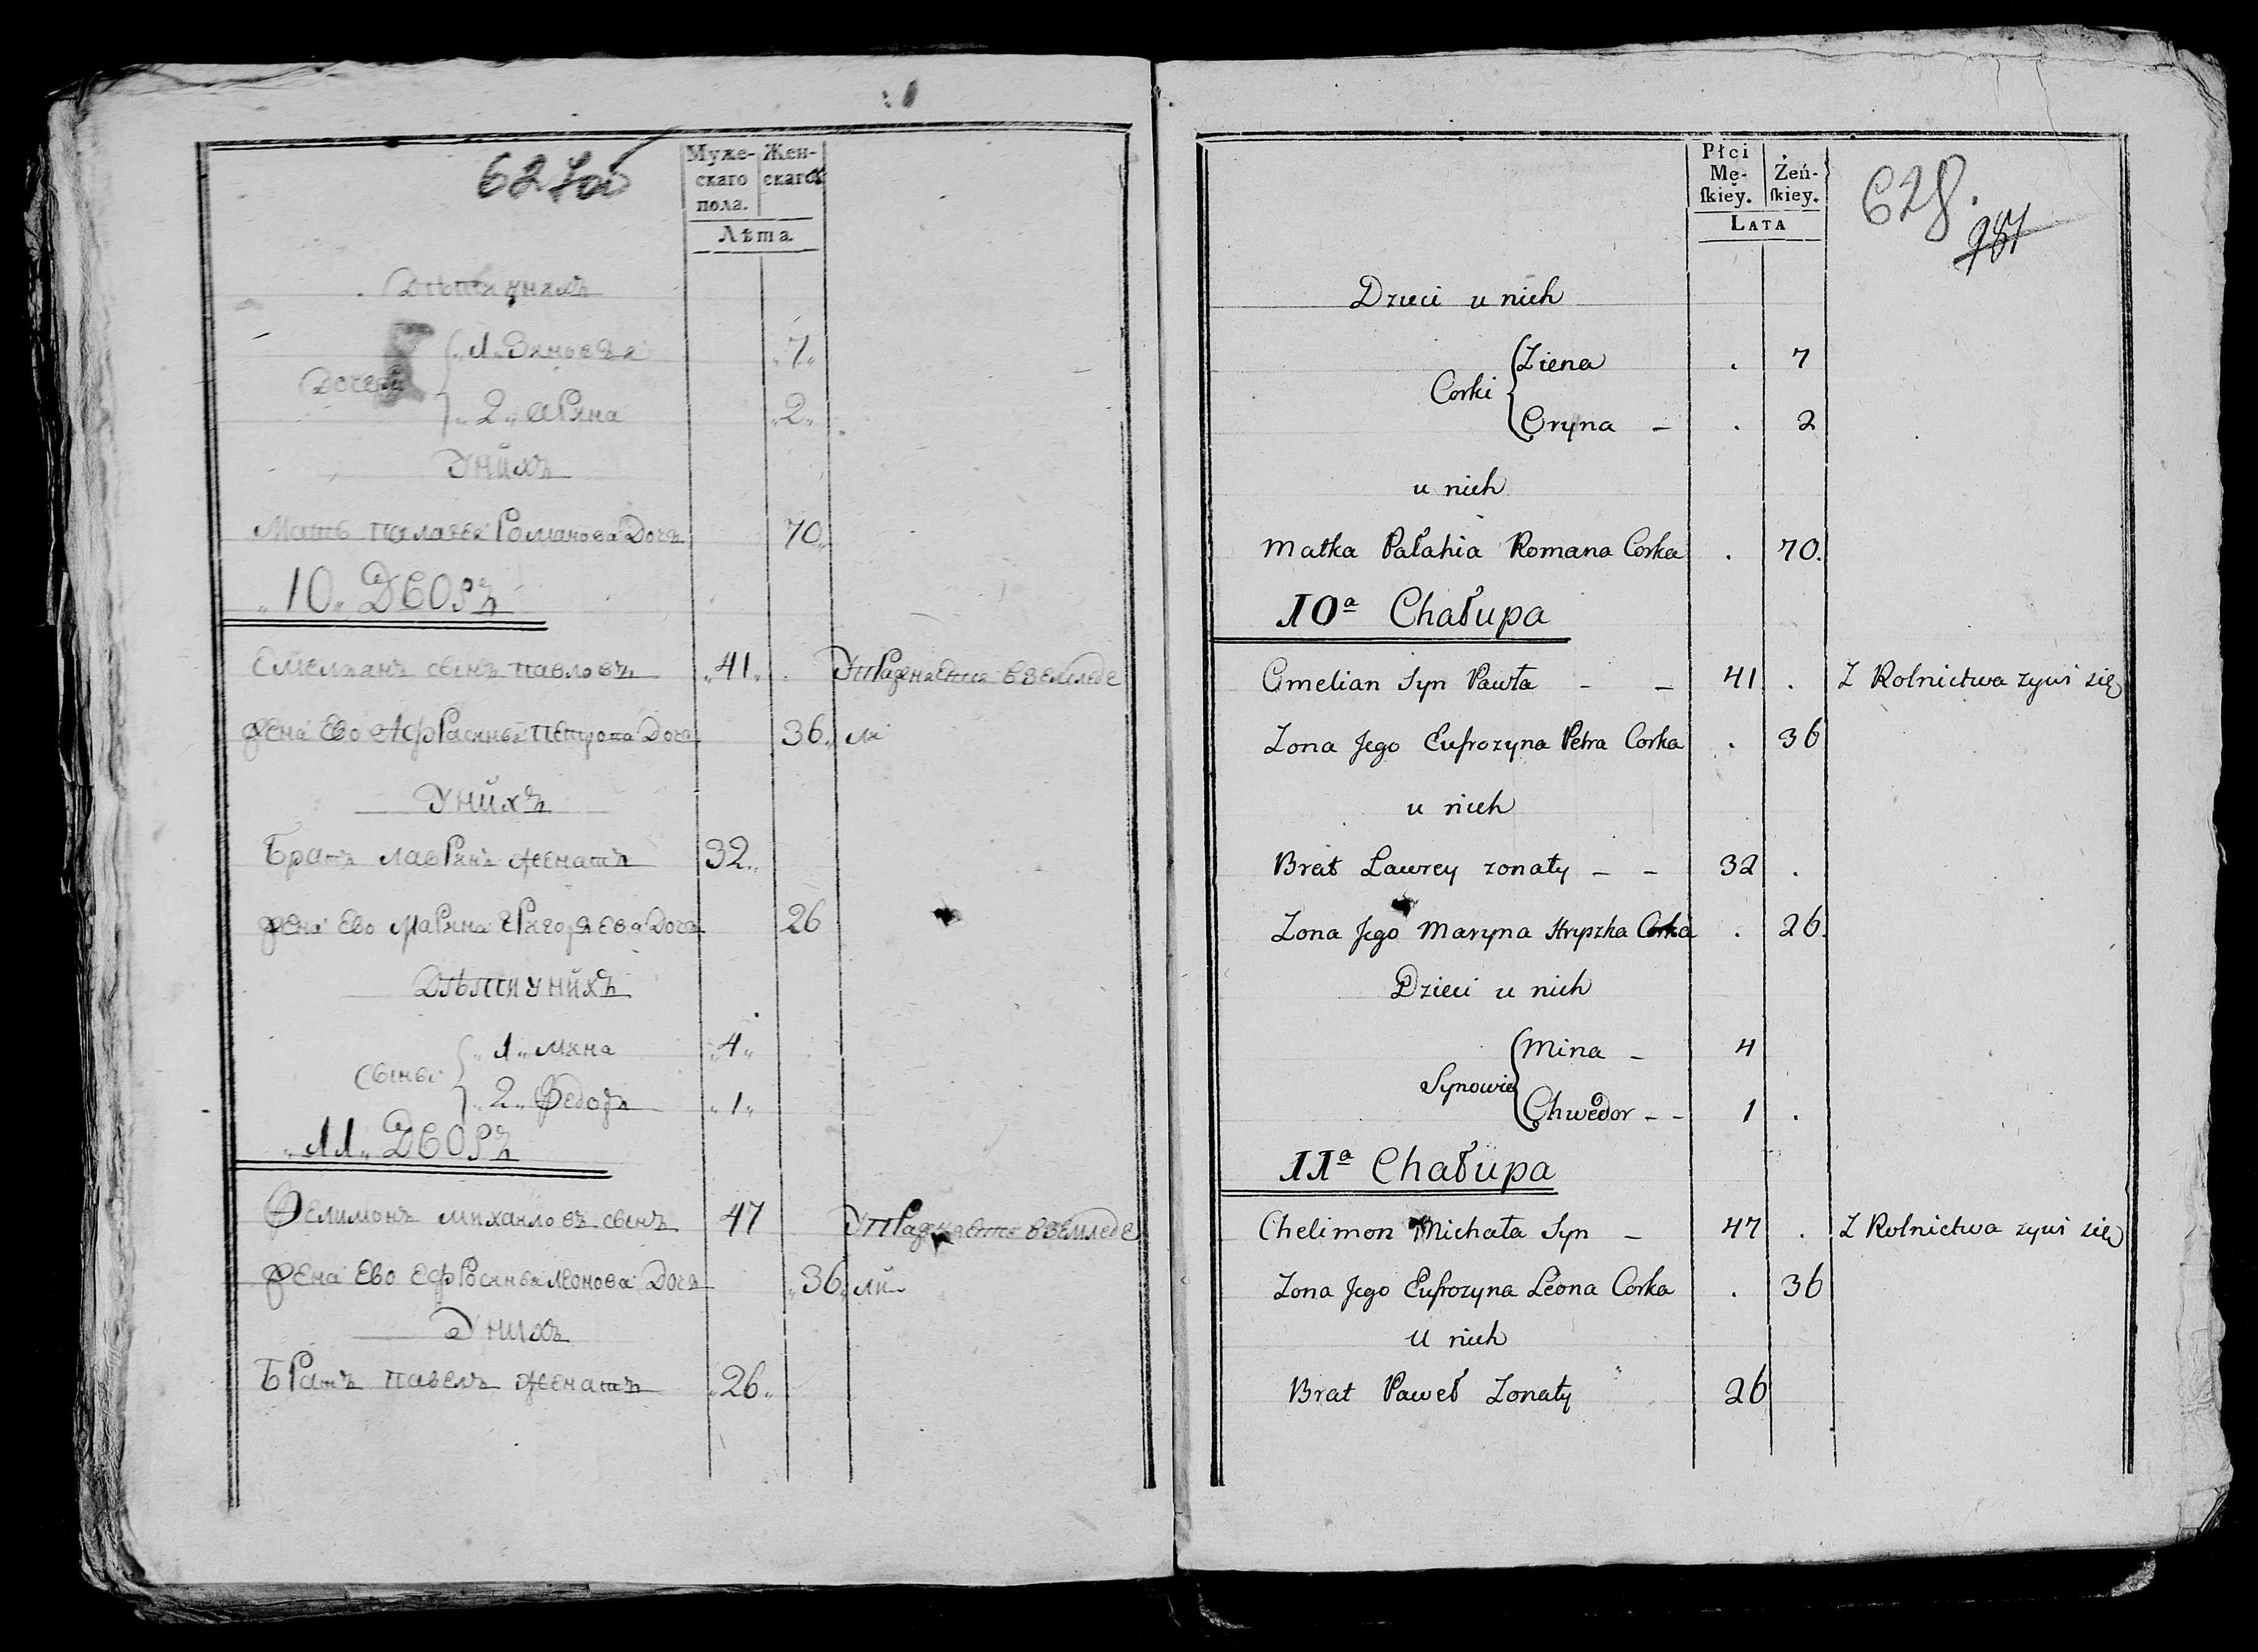 627об
Муже-
скаго
пола.
Жен-
скаго
Лѣта.
Дѣти унихъ
Дочери
1 Зиновія 7
2 Арина 2
Унихъ
Мать палагея Романова Дочь 70
10 Дворъ
Емельянъ сынъ павловъ 41 Упражняется вземледе
жена Ево Афрасинья Петрова Дочь 36 ли
Унихъ
Братъ лаврянъ женатъ 32
жена Ево Марина Григорьева Дочь 26
Дѣти унихъ
сыны
1 мина 4
2 Федоръ 1
11 Дворъ
Фелимонъ михайловъ сынъ 47 Упражняется вземледе
жена Ево Ефросинья леонова Дочь 36 ли
Унихъ
Братъ павелъ женатъ 26
Płci
Mę-
ſkiey.
Żeń-
ſkiey.
LATA
628.
Dzieci u nich
Corki
Ziena . 7
Oryna – . 2
u nich
Matka Pałahia Romana Corka . 70.
10a Chałupa
Omelian Syn Pawła – – 41 . Z Rolnictwa zywi się
Zona Jego Eufrozyna Petra Corka . 36
u nich
Brat Ławrey zonaty – – 32 .
Zona Jego Maryna Hryszka Corka . 26.
Dzieci u nich
Synowie
Mina – 4
Chwedor – – 1 .
11a Chałupa
Chelimon Michała Syn – 47 . Z Rolnictwa zywi się
Zona Jego Eufrozyna Leona Corka . 36
U nich
Brat Paweł Zonaty 26